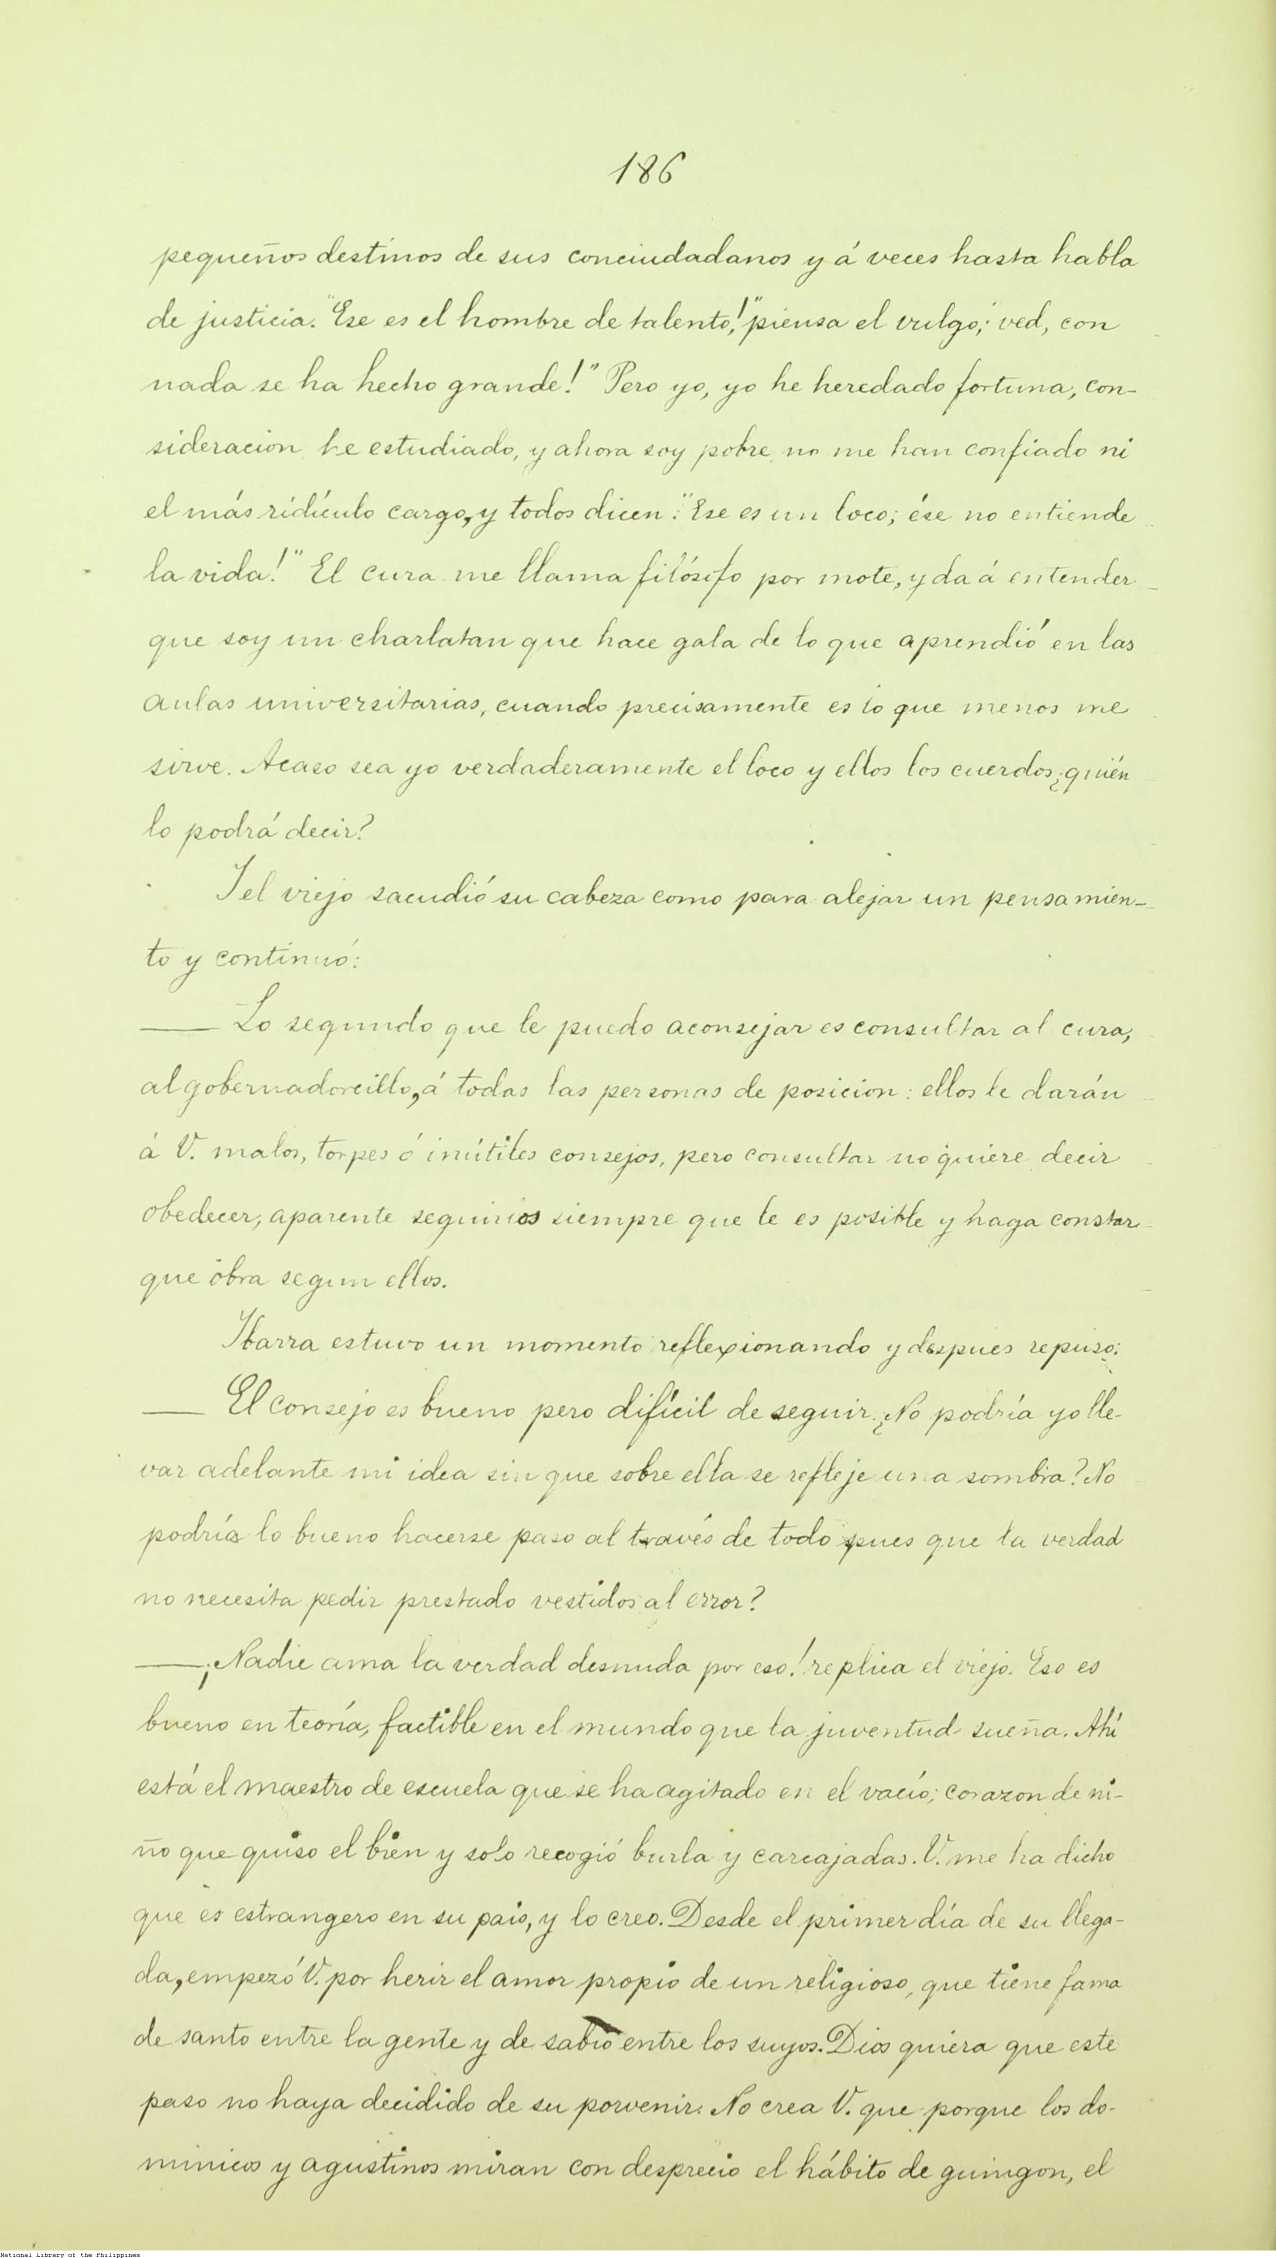 186
pequeños destinos de sus conciudadanos y á veces hasta habla
de justicia. "Ese es el hombre de talento!," piensa el vulgo; "ved, con
nada se ha hecho grande!" Pero yo, yo he heredado fortuna, con-
sideracion he estudiado, y ahora soy pobre no me han confiado ni
el más ridículo cargo, y todos dicen: "Ese es un loco; ése no entiende
la vida!" El cura me llama filósofo por mote, y da á entender
que soy un charlatan que hace gala de lo que aprendió en las
aulas universitarias, cuando precisamente es lo que menos me
sirve. Acaso sea yo verdaderamente el loco y ellos los cuerdos ¿quién
lo podrá decir?
Y el viejo sacudió su cabeza como para alejar un pensamien-
to y continuó:
— Lo segundo que le puedo aconsejar es consultar al cura,
al gobernadorcillo, á todas las personas de posicion: ellos le darán
á V. malos, torpes ó inútiles consejos, pero consultar no quiere decir
obedecer, aparente seguirlos siempre que le es posible y haga constar
que obra segun ellos.
Ibarra estuvo un momento reflexionando y despues repuso:
— El consejo es bueno pero difícil de seguir. ¿No podría yo lle-
var adelante mi idea sin que sobre ella se refleje una sombra? No
podría lo bueno hacerse paso al través de todo pues que la verdad
no necesita pedir prestado vestidos al error?
— ¡Nadie ama la verdad desnuda por eso! replica el viejo. Eso es
bueno en teoría, factible en el mundo que la juventud sueña. Ahí
está el maestro de escuela que se ha agitado en el vacío; corazon de ni-
ño que quiso el bien y solo recogió burla y carcajadas. V. me ha dicho
que es estrangero en su pais, y lo creo. Desde el primer día de su llega-
da, empezó V. por herir el amor propio de un religioso, que tiene fama
de santo entre la gente y de sabio entre los suyos. Dios quiera que este
paso no haya decidido de su porvenir. No crea V. que porque los do-
minicos y agustinos miran con desprecio el hábito de guingon, el
National Library of the Philippines